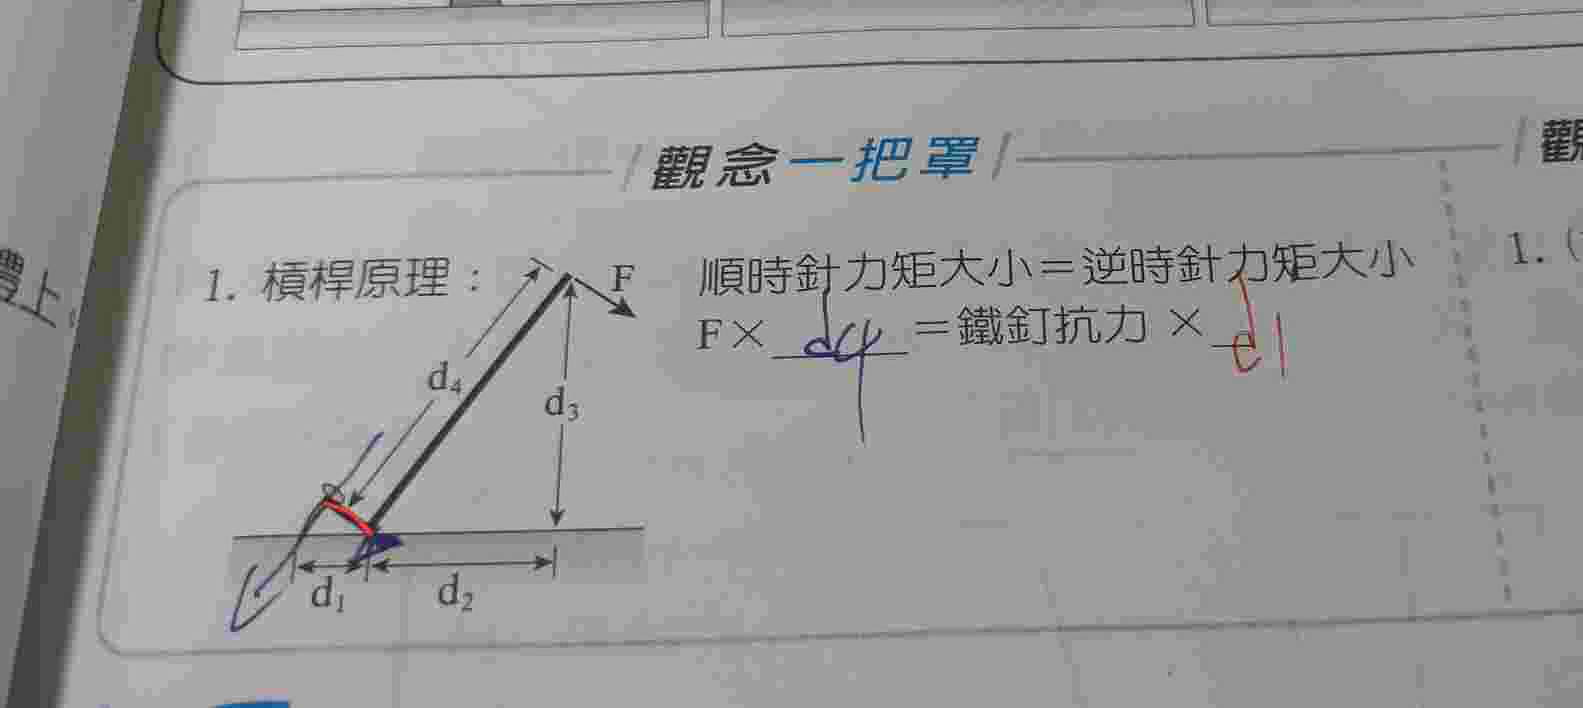 觀念一把罩
觀
豐上。
1. 槓桿原理：
F
順時針力矩大小＝逆時針力矩大小
F× d4 ＝鐵釘抗力 × d1
1. (
d₄
d₃
d₁
d₂